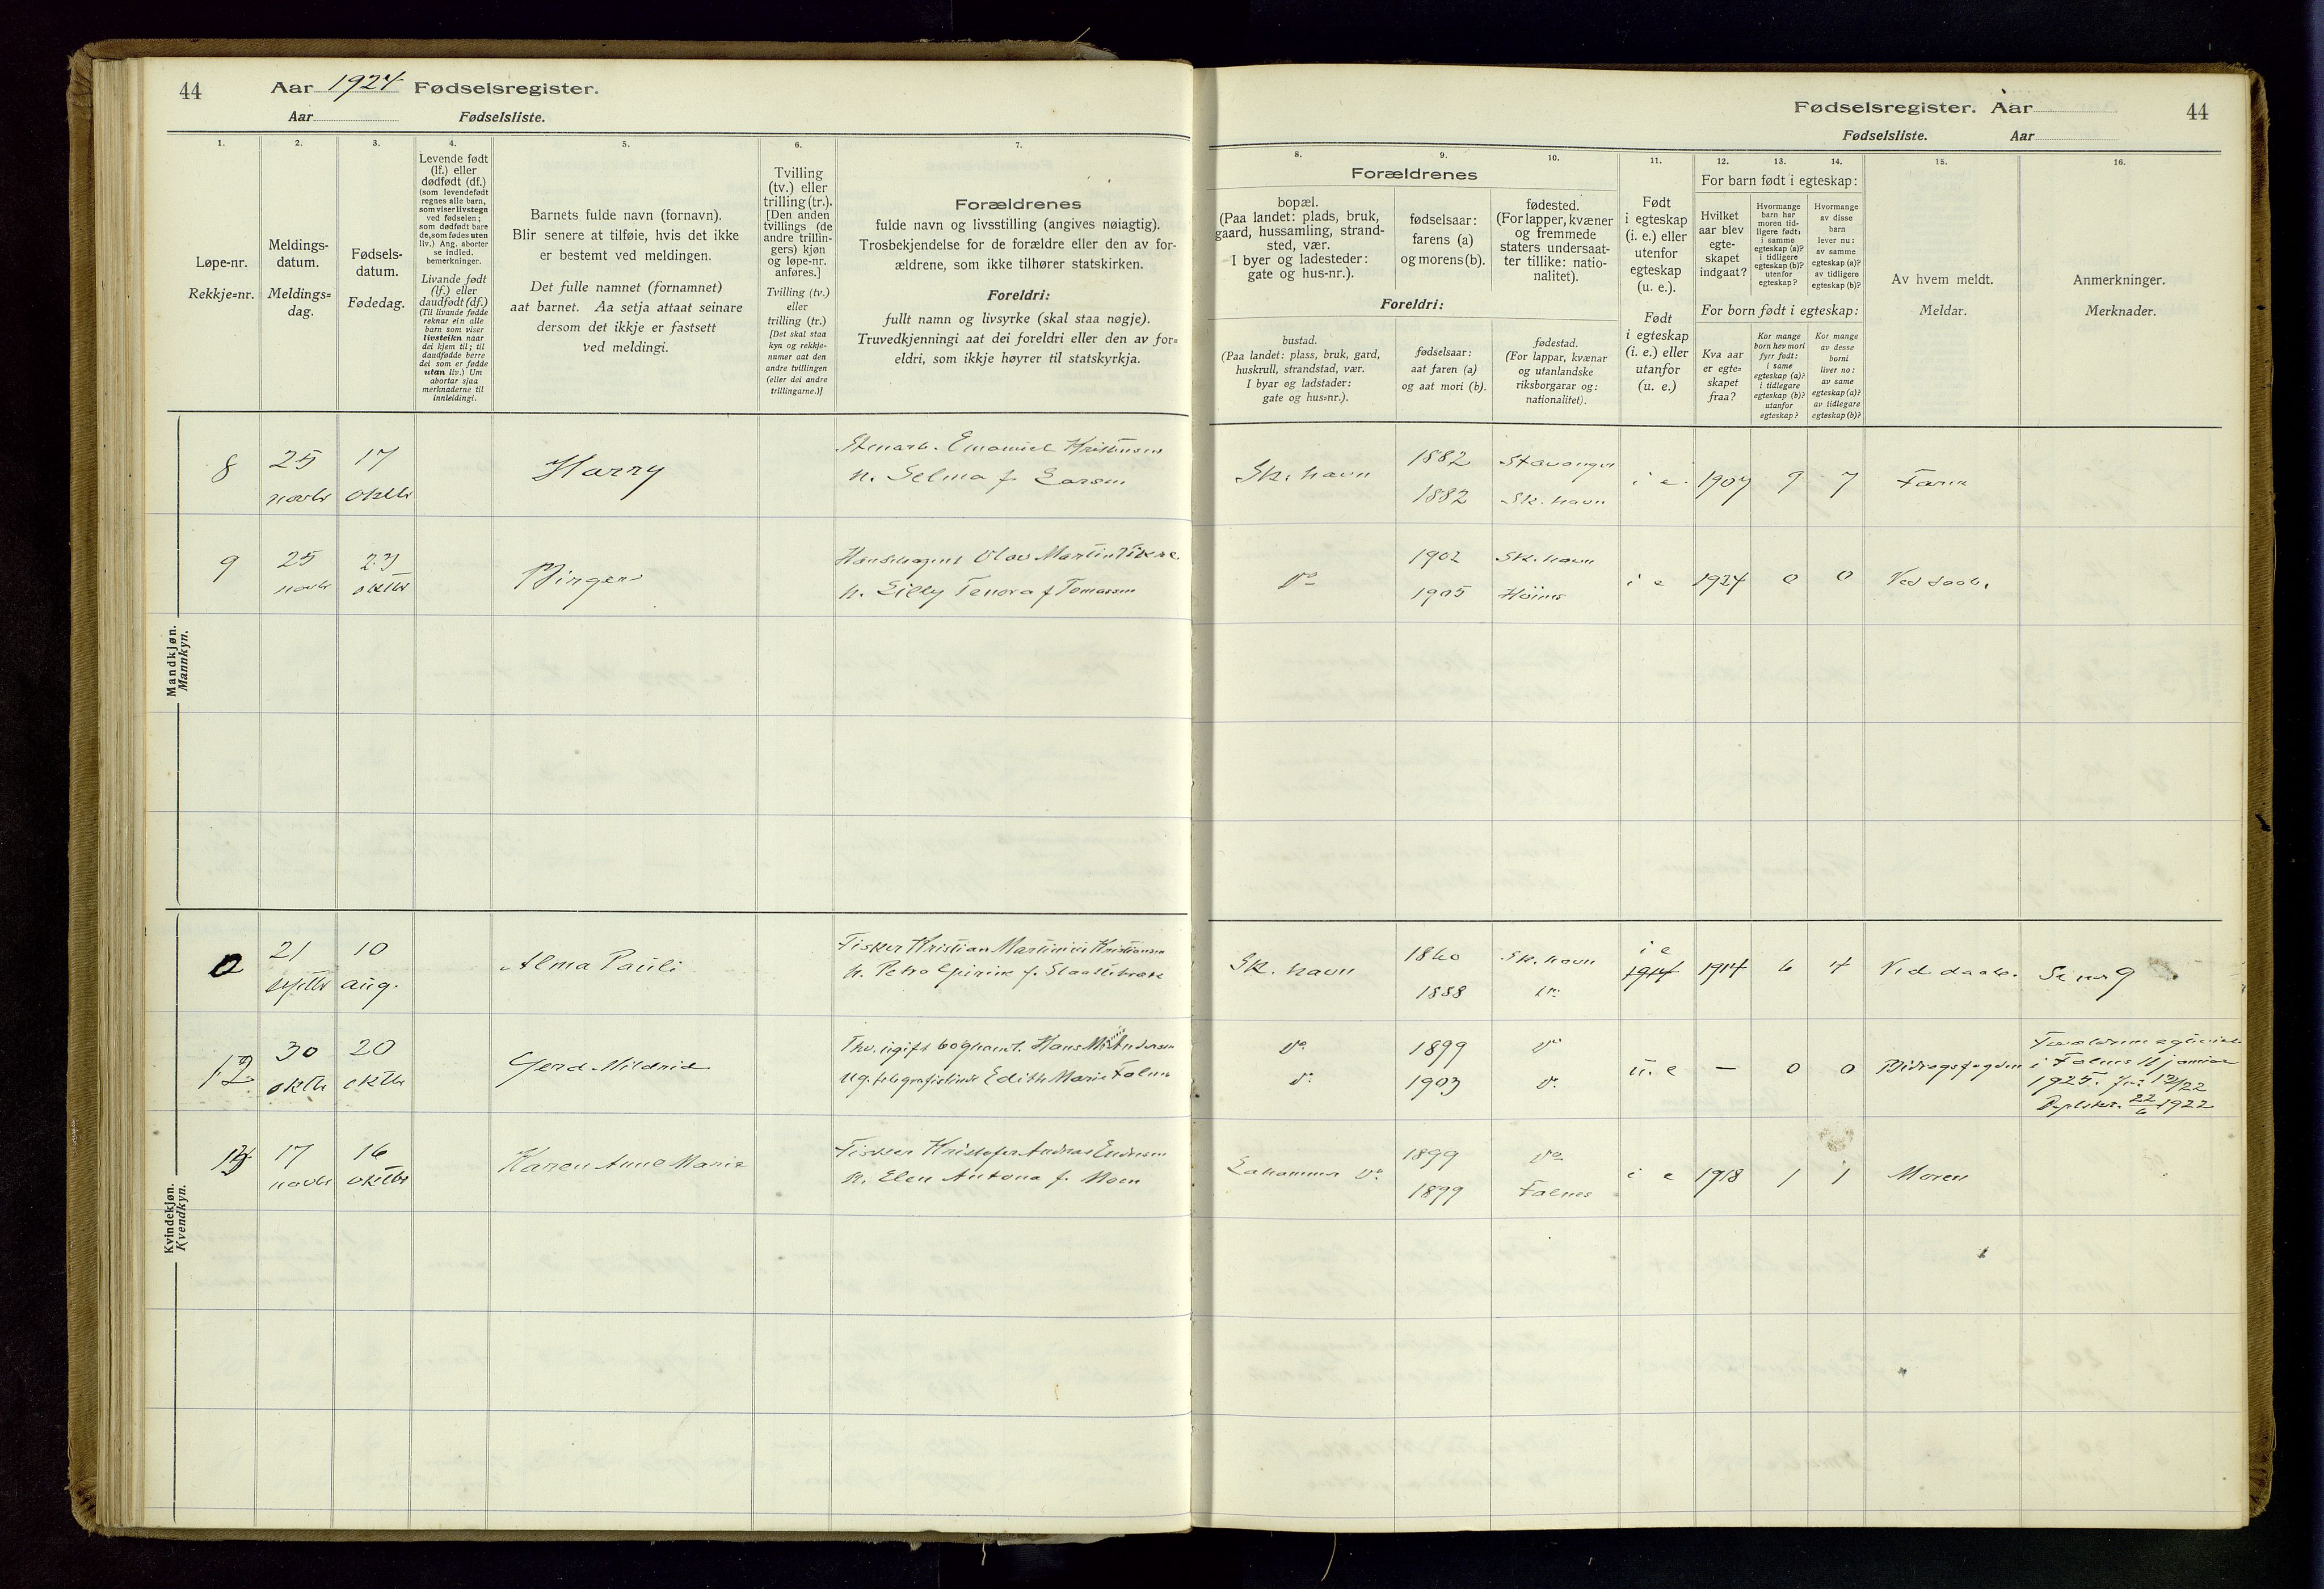 44
Aar 1924 Fødselsregister.
Aar Fødselsliste.
1.
Løpe-nr.
Rekkje=nr.
2.
Meldings-
datum.
Meldings=
dag.
3.
Fødsels-
datum.
Fødedag.
4.
Levende født
(lf.) eller
dødfødt (df.)
(som levendefødt
regnes alle barn,
som viser livstegn
ved fødselen;
som dødfødt bare
de, som fødes uten
liv.) Ang. aborter
se indled.
bemerkninger.
Livande født
(lf.) eller
daudfødt (df.)
(Til livande fødde
reknar ein alle
barn som viser
livsteikn naar
dei kjem til; til
daudfødde berre
dei som er fødde
utan liv.) Um
abortar sjaa
merknaderne til
innleidingi.
5.
Barnets fulde navn (fornavn).
Blir senere at tilføie, hvis det ikke
er bestemt ved meldingen.
Det fulle namnet (fornamnet)
aat barnet. Aa setja attaat seinare
dersom det ikkje er fastsett
ved meldingi.
6.
Tvilling
(tv.) eller
trilling (tr.).
[Den anden
tvillings (de
andre trillin-
gers) kjøn
og løpe-nr.
anføres.]
Tvilling (tv.)
eller
trilling (tr.)
[Det skal staa
kyn og rekkje-
numer aat den
andre tvillingen
(eller dei andre
trillingarne.)]
7.
Forældrenes
fulde navn og livsstilling (angives nøiagtig).
Trosbekjendelse for de forældre eller den av for-
ældrene, som ikke tilhører statskirken.
Foreldri:
fullt namn og livsyrke (skal staa nøgje).
Truvedkjenningi aat dei foreldri eller den av for=
eldri, som ikkje høyrer til statskyrkja.
Fødselsregister. Aar 44
Fødselsliste. Aar
8.
Forældrenes
bopæl.
(Paa landet: plads, bruk,
gaard, hussamling, strand-
sted, vær.
I byer og ladesteder:
gate og hus-nr.).
Foreldri:
bustad.
(Paa landet: plass, bruk, gard,
huskrull, strandstad, vær.
I byar og ladstader:
gate og hus=nr.).
9.
fødselsaar:
farens (a)
og morens (b).
fødselsaar:
aat faren (a)
og aat mori (b).
10.
fødested.
(For lapper, kvæner
og fremmede
staters undersaat-
ter tillike: natio-
nalitet).
fødestad.
(For lappar, kvænar
og utanlandske
riksborgarar og:
nationalitet).
11.
Født
i egteskap
(i. e.) eller
utenfor
egteskap
(u. e.).
Født
i egteskap
(i. e.) eller
utanfor
(u. e.)
12. 13. 14.
For barn født i egteskap:
Hvilket
aar blev
egte-
skapet
indgaat?
Hvormange
barn har
moren tid-
ligere født:
i samme
egteskap (a)?
i tidligere
egteskap (b)?
utenfor
egteskap?
Hvormange
av disse
barn
lever nu:
av samme
egteskap (a)?
av tidligere
egteskap (b)?
For born født i egteskap:
Kva aar
er egte-
skapet
fraa?
Kor mange
born hev mori
fyrr født:
i same
egteskap (a)?
i tidlegare
egteskap (b)?
utanfor
egteskap?
Kor mange
av desse
borni
liver no:
av same
egteskap (a)?
av tidlegare
egteskap (b)?
15.
Av hvem meldt.
Meldar.
16.
Anmerkninger.
Merknader.
Mandkjøn.
Mannkyn.
8 25 novbr 17 oktbr Harry
Emanuel Kristensen
h. Selma f. Larsen
Sk. havn 1882 Stavanger
1882 Sk. havn
i e. 1907 9 7 Faren
9 25 novbr 23 oktbr Birger
Olav Martin
h. Lilly Tenora f Tomassen
Do 1902 Sk. havn
1905
i e 1924 0 0 Ved daab.
Kvindekjøn.
Kvendkyn.
21 septbr 10 aug. Alma Pauli
Fisker Kristian Martinius Kristiansen
h. Petra
Sk. havn 1860 Sk. havn
1888 Do
i e 1914 1914 6 4 Ved daab. Se nr 9
12 30 oktbr 20 oktbr Gerd Mildrid
Hans M. Andersen
ug. telegrafistinde Edith Marie Falnes
Do 1899 Do
Do 1903 Do
u. e — 0 0 Bidragsfogden
i Falnes 11 januar
1925.
22/6 1922
13 17 novbr 16 oktbr Karen Anne Marie
Fisker Kristofer Andreas Endresen
h. Elen Antona f. Moen
Lahammer Do 1899 Do
1899 Falnes
i e 1918 1 1 Moren